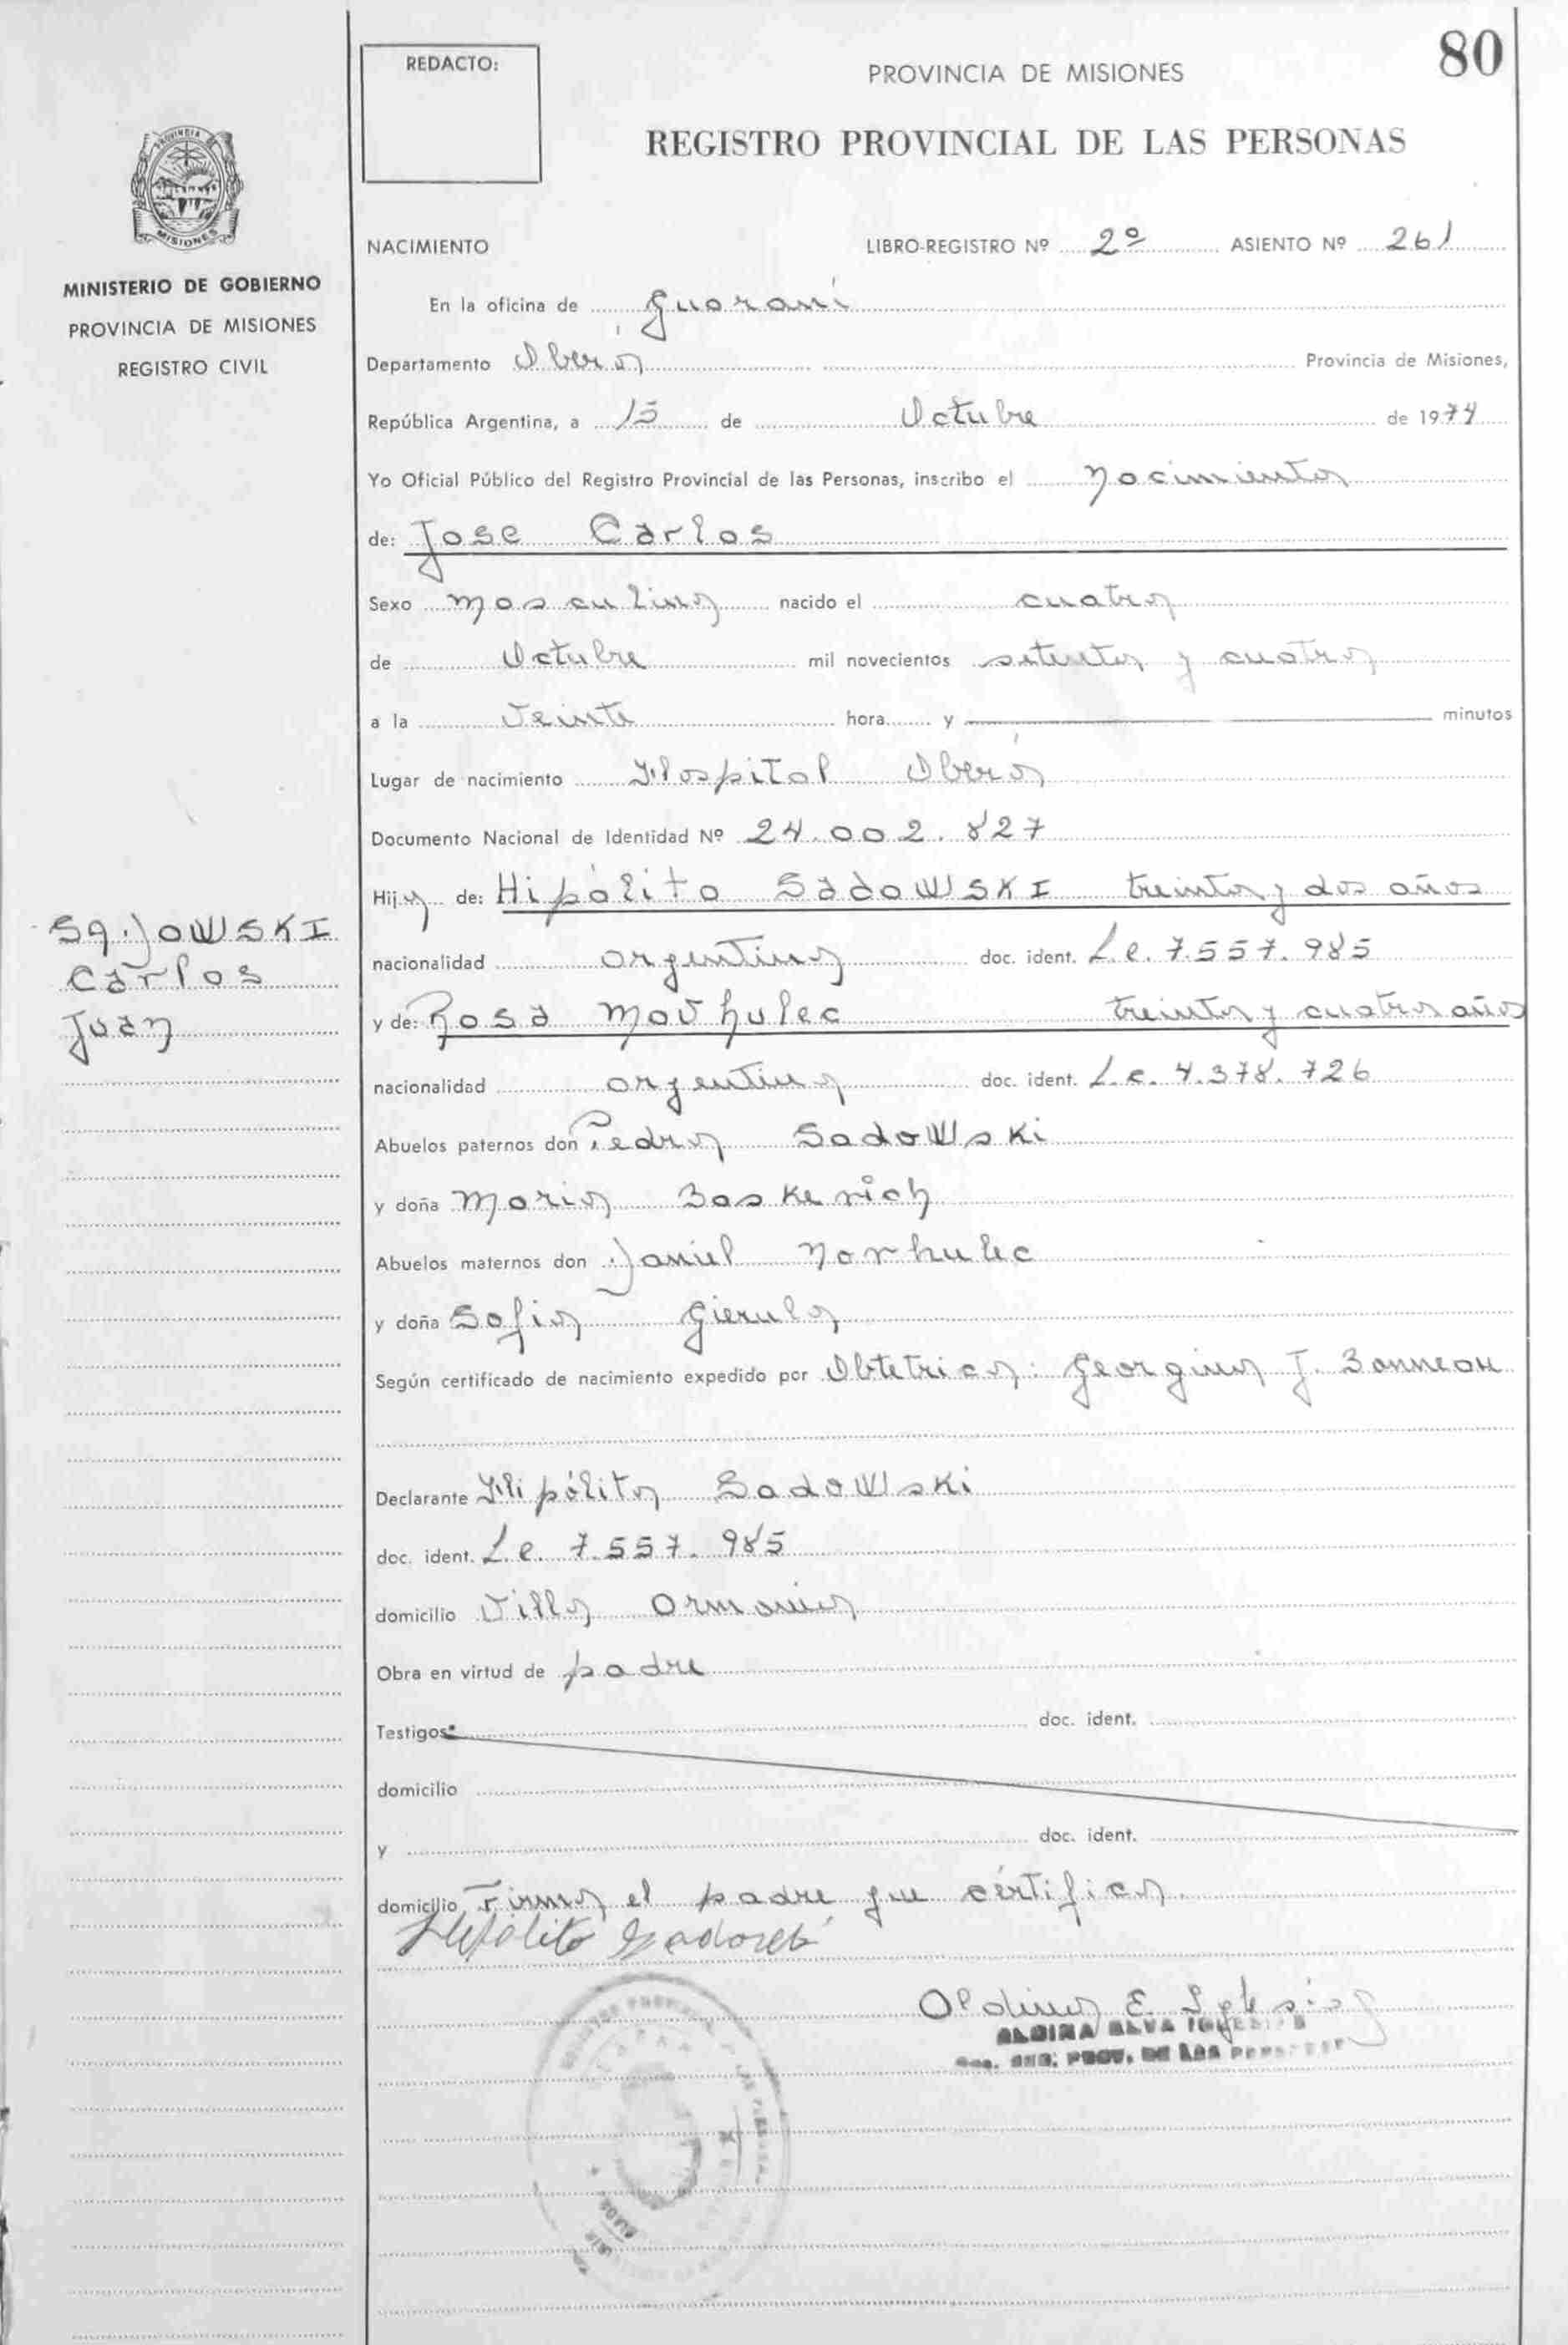 80
REDACTO:
PROVINCIA DE MISIONES
REGISTRO PROVINCIAL DE LAS PERSONAS
PROVINCIA
MISIONES
MINISTERIO DE GOBIERNO
PROVINCIA DE MISIONES
REGISTRO CIVIL
NACIMIENTO LIBRO-REGISTRO Nº 2º ASIENTO Nº 261
En la oficina de Guaraní
Departamento Oberá Provincia de Misiones,
República Argentina, a 15 de Octubre de 1974
Yo Oficial Público del Registro Provincial de las Personas, inscribo el nacimiento
de: Jose Carlos
Sexo masculino nacido el cuatro
de Octubre mil novecientos setenta y cuatro
a la veinte hora y minutos
Lugar de nacimiento Hospital Oberá
Documento Nacional de Identidad Nº 24.002.827
Hijo de: Hipólito SadoWSKI treinta y dos años
nacionalidad argentino doc. ident. L.e. 7.557.985
y de: Rosa Movhulec treinta y cuatro años
nacionalidad argentina doc. ident. L.c. 4.378.726
Abuelos paternos don Pedro SadoWski
y doña Maria Baskevich
Abuelos maternos don Daniel Morhulec
y doña Sofia Gierula
Según certificado de nacimiento expedido por Obtetrica: Georgina J. Bonneau
Declarante Hipólito SadoWski
doc. ident. L.e. 7.557.985
domicilio Villa Armonia
Obra en virtud de padre
Testigos: doc. ident.
domicilio
y doc. ident.
domicilio Firma el padre que certifica
Hipólito
Aldina E. Iglesias
ALDINA ELVA IGLESIAS
REG. PROV. DE LAS PERSONAS
SaDOWSKI
Carlos
Juan